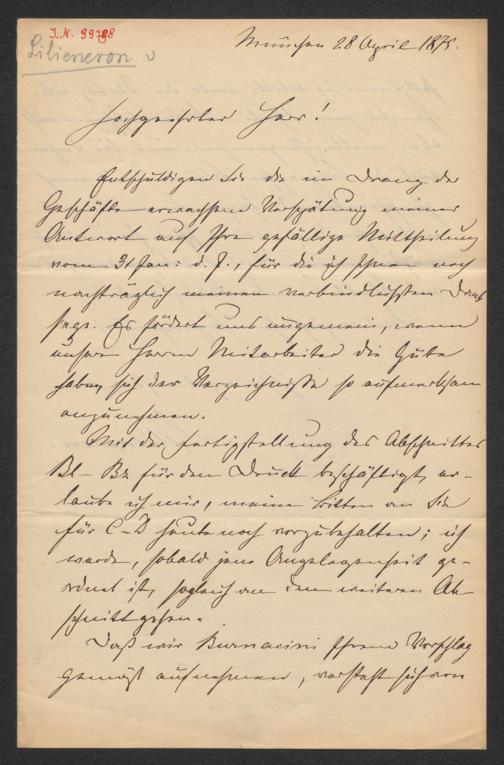 J.N. 39798
Liliencron v
München 28 April 1875.
Hochgeehrter Herr!
Entschuldigen Sie die im Drang der
Geschäfte erwachsene Verspätung meiner
Antwort auf Ihre gefällige Mittheilung
vom 31 Jan: d. J., für die ich Ihnen noch
nachträglich meinen verbindlichsten Dank
sage. Es fördert uns ungemein, wenn
unsere Herrn Mitarbeiter die Güte
haben, sich der Verzeichnisse so aufmerksam
anzunehmen.
Mit der Fertigstellung des Abschnittes
Bl–Bz für den Druck beschäftigt, er-
laube ich mir, meine Bitten an Sie
für C–D heute noch vorzubehalten; ich
werde, sobald jene Angelegenheit ge-
ordnet ist, sogleich an den weiteren Ab-
schnitt gehen.
Daß wir Burnacini Ihrem Vorschlag
gemäß aufnehmen, versteht sich von